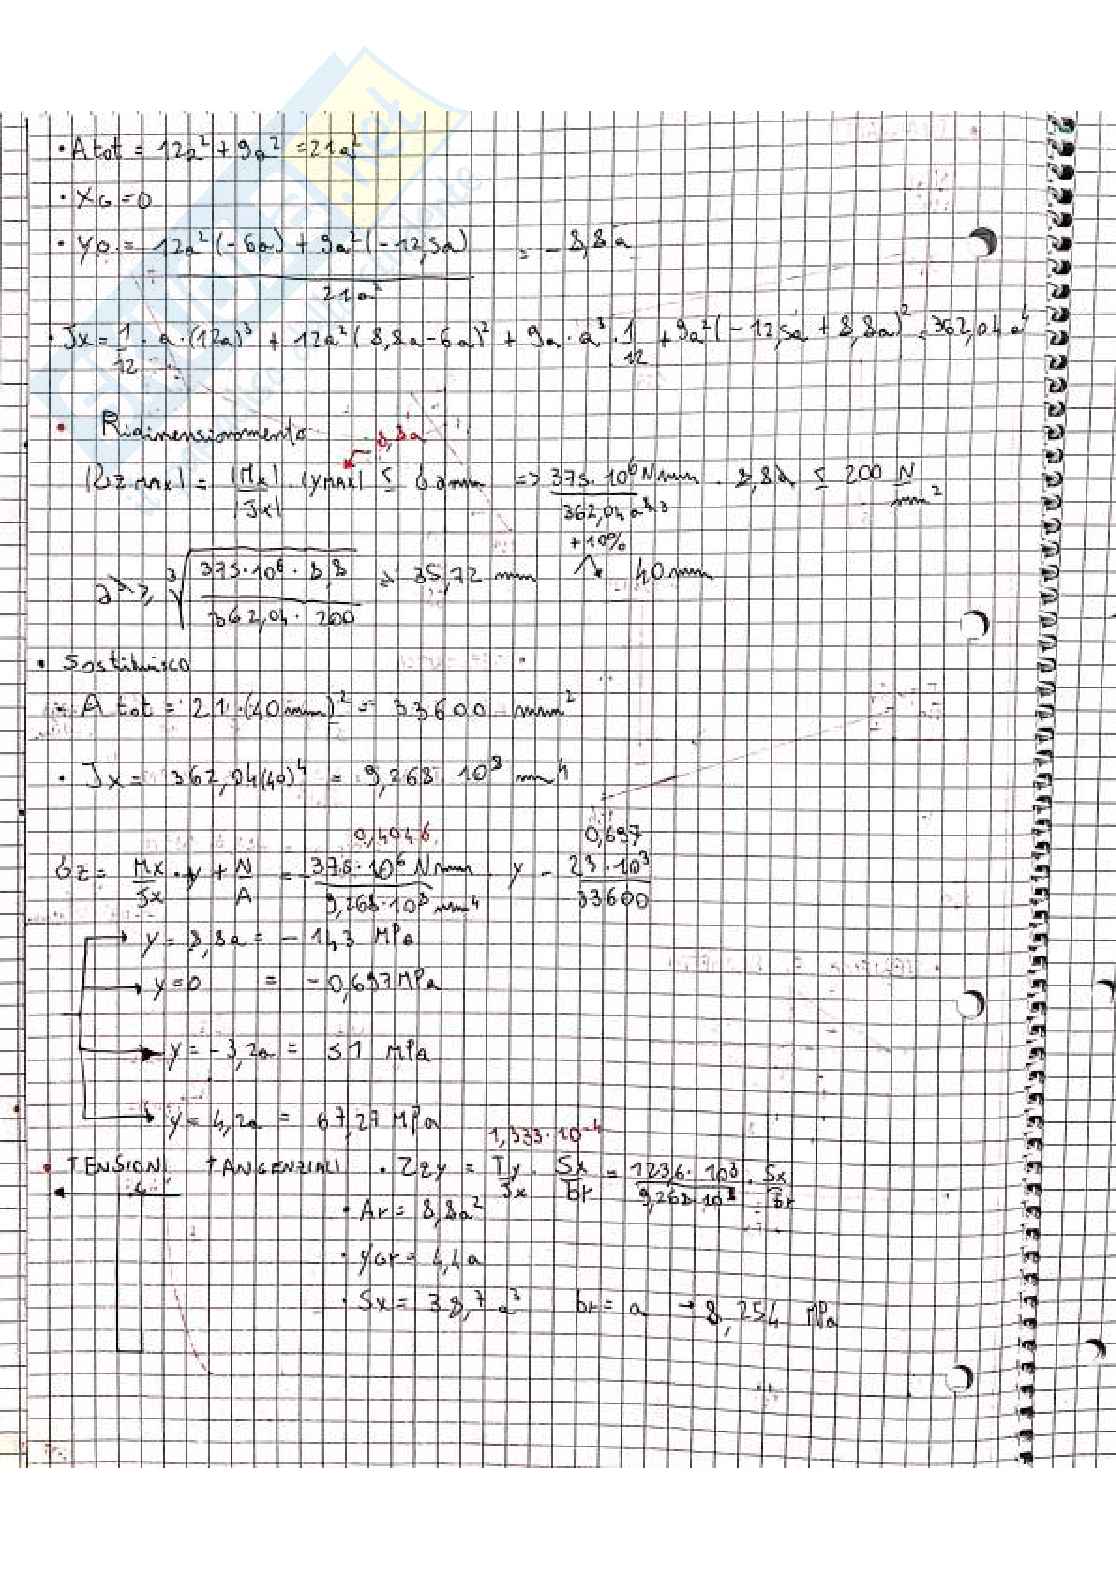 • A tot = 12a² + 9a² = 21a²
• XG = 0
• YG = 12a²(-6a) + 9a²(-12,5a) / 21a² = - 8,8a
• Jx = 1/12 · a · (12a)³ + 12a²(8,8a-6a)² + 9a · a³ · 1/12 + 9a²(-12,5a + 8,8a)² = 362,04 a⁴
• Ridimensionamento
8,8a
|σz MAX| = |Mx|/|Jx| · |yMAX| ≤ σamm => 375 · 10⁶ Nmm / 362,04 a⁴ ³ · 8,8a ≤ 200 N/mm²
+10%
a ≥ ³√(375·10⁶ · 8,8 / 362,04 · 200) = 35,72 mm 40 mm
• Sostituisco
• A tot = 21 · (40mm)² = 33600 mm²
• Jx = 362,04(40)⁴ = 9,268 10⁸ mm⁴
0,4046 0,697
σz = Mx/Jx · y + N/A = - 375 · 10⁶ Nmm / 9,268·10⁸ mm⁴ · y - 23·10³ / 33600
y = 8,8a = - 143 MPa
y = 0 = - 0,697 MPa
y = - 3,2a = 51 MPa
y = 4,2a = 67,27 MPa
1,333·10⁻⁴
• TENSIONI TANGENZIALI • τzy = Ty/Jx · Sx/br = 123,6 · 10³ / 9,268·10⁸ · Sx/br
• Ar = 8,8a²
• yGr = 4,4a
• Sx = 38,7 a³ br = a → 8,254 MPa